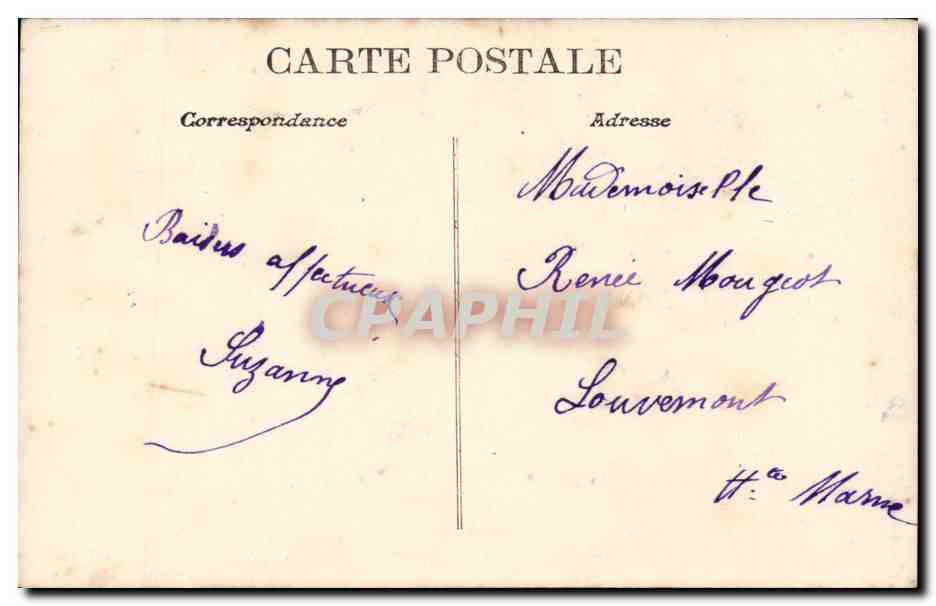 CARTE POSTALE
Correspondance
Adresse
Baisers affectueux
Suzanne
Mademoiselle
Renée Mougeot
Louvemont
Hte Marne
CPAPHIL